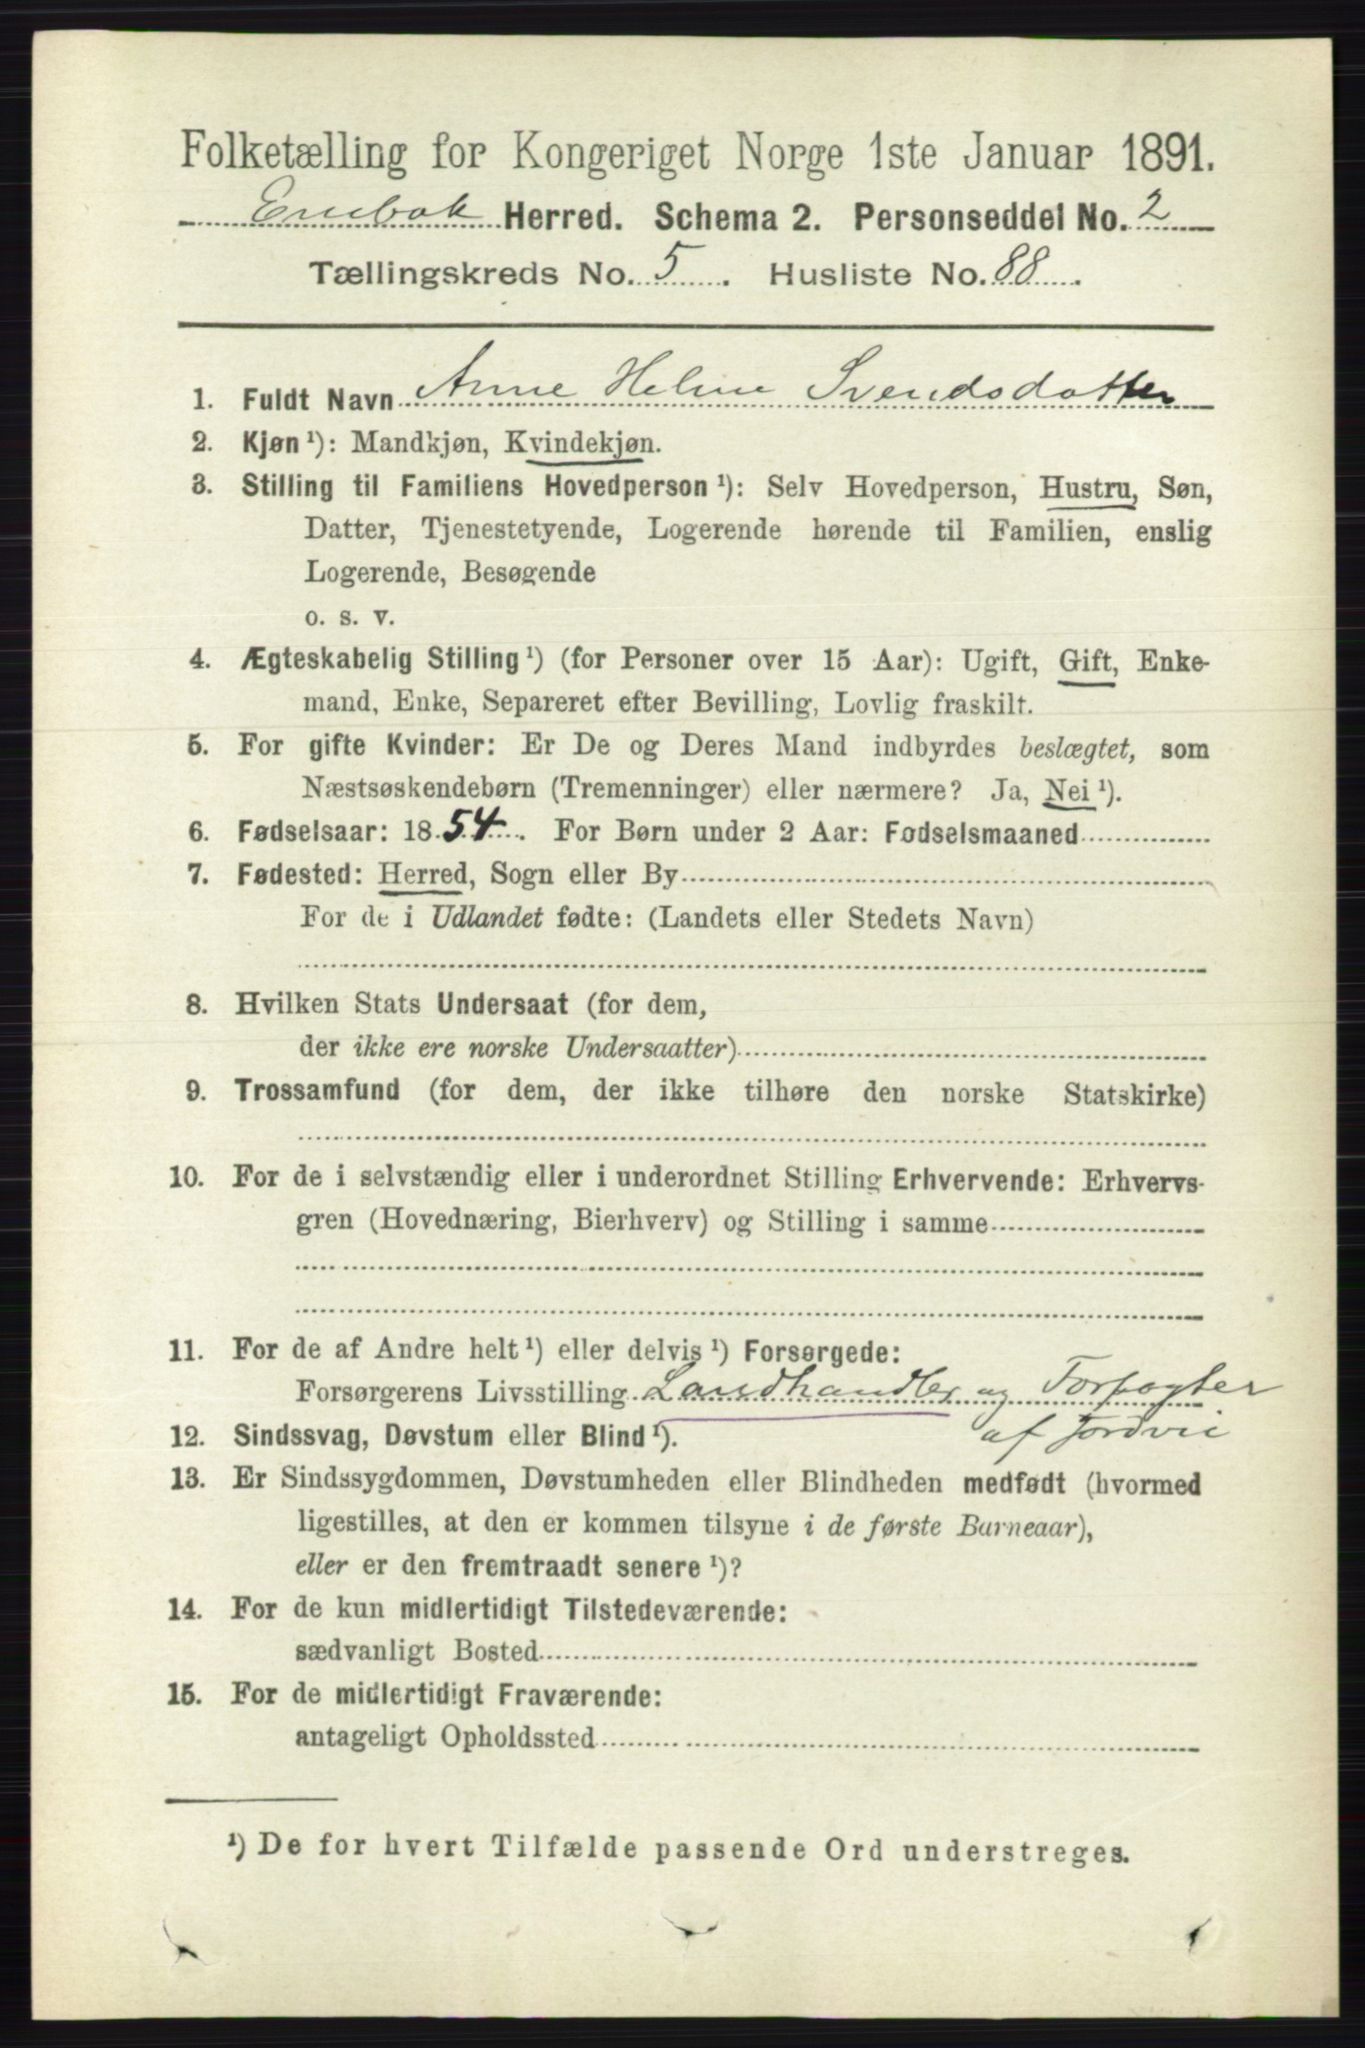 Folketælling for Kongeriget Norge 1ste Januar 1891.
Enebak Herred. Schema 2. Personseddel No. 2
Tællingskreds No. 5. Husliste No. 88.
1. Fuldt Navn Anne Heline Svendsdatter
2. Kjøn ¹): Mandkjøn, Kvindekjøn.
3. Stilling til Familiens Hovedperson ¹): Selv Hovedperson, Hustru, Søn,
Datter, Tjenestetyende, Logerende hørende til Familien, enslig
Logerende, Besøgende
o. s. v.
4. Ægteskabelig Stilling ¹) (for Personer over 15 Aar): Ugift, Gift, Enke-
mand, Enke, Separeret efter Bevilling, Lovlig fraskilt.
5. For gifte Kvinder: Er De og Deres Mand indbyrdes beslægtet, som
Næstsøskendebørn (Tremenninger) eller nærmere? Ja, Nei ¹).
6. Fødselsaar: 1854. For Børn under 2 Aar: Fødselsmaaned
7. Fødested: Herred, Sogn eller By
For de i Udlandet fødte: (Landets eller Stedets Navn)
8. Hvilken Stats Undersaat (for dem,
der ikke ere norske Undersaatter)
9. Trossamfund (for dem, der ikke tilhøre den norske Statskirke)
10. For de i selvstændig eller i underordnet Stilling Erhvervende: Erhvervs-
gren (Hovednæring, Bierhverv) og Stilling i samme
11. For de af Andre helt ¹) eller delvis ¹) Forsørgede:
Forsørgerens Livsstilling Landhandler og Forpagter
af Jordvei
12. Sindssvag, Døvstum eller Blind ¹).
13. Er Sindssygdommen, Døvstumheden eller Blindheden medfødt (hvormed
ligestilles, at den er kommen tilsyne i de første Barneaar),
eller er den fremtraadt senere ¹)?
14. For de kun midlertidigt Tilstedeværende:
sædvanligt Bosted
15. For de midlertidigt Fraværende:
antageligt Opholdssted
¹) De for hvert Tilfælde passende Ord understreges.